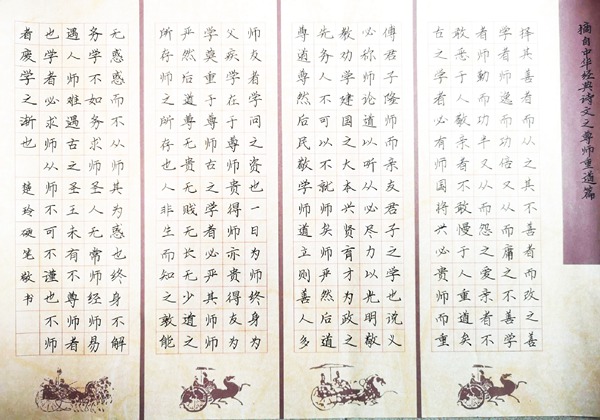 摘自中华经典诗文之尊师重道篇
择其善者而从之其不善者而改之善
学者师逸而功倍又从而庸之不善学
者师勤而功半又从而怨之爱亲者不
敢恶于人敬亲者不敢慢于人重道矣
古之学者必有师国将兴必贵师而重
傅君子隆师而亲友君子之学也说义
必称师论道以听从必尽力以光明敬
教功学建国之大本兴贤育才为政之
先务人不可以不就师矣师严然后道
尊道尊然后民敬学师道立则善人多
师友者学问之资也一日为师终身为
父疾学在于尊师贵得师亦贵得友为
学莫重于尊师古之学者必严其师师
严然后道尊无贵无贱无长无少道之
所存师之所存也人非生而知之孰能
无惑惑而不从师其为惑也终身不解
务学不如务求师圣人无常师经师易
遇人师难遇古之圣王未有不尊师者
也学者必求师从师不可不谨也不师
者废学之渐也 楚玲硬笔敬书